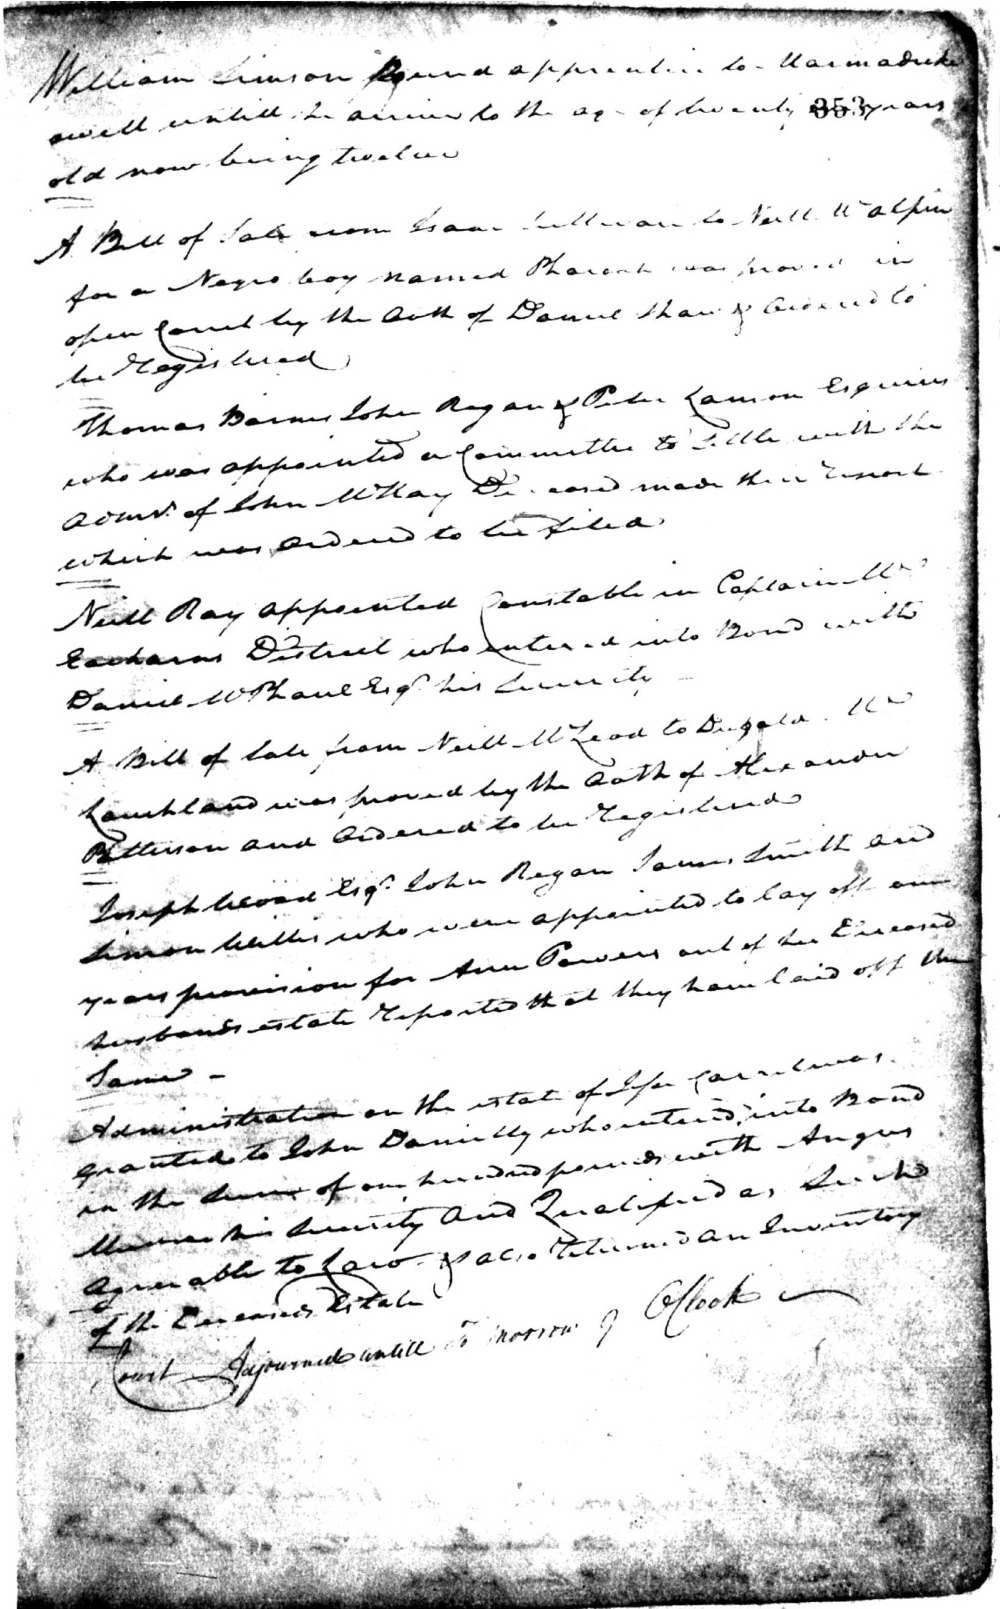 William Simson Bound apprentice to Marmaduke
untill he arives to the age of twenty years
353
old now being twelve
A Bill of Sale from Isaac Sullivan to Neill McAlpin
for a Negro boy named Pharoah was proved in
open Court by the Oath of Daniel Shaw & Ordered to
be Registered
Thomas Barnes John Regan & Peter Lamon Esquires
who was appointed a Committee to Settle with the
Admr. of John McKay Deceased made their Report
which was Ordered to be filed
Neill Ray appointed Constable in Captain Mc
Eacharns District who entered into Bond with
Daniel McPhaul Esqr. his Security
A Bill of Sale from Neill McLeod to Dugald Mc
Lauchland was proved by the Oath of Alexander
Patterson and Ordered to be Registered
Joseph Wood Esqr. John Regan James Smith and
Simon Willis who were appointed to lay off one
years provision for Ann Powers out of her Deceased
husbands estate Reported that they have laid off the
Same -
Administration on the estate of was
granted to John Danielly who entered into Bond
in the Sum of one hundred pounds with Angus
his Security and Qualified as Such
Agreeable to Law & also Returned an Inventory
of the Deceaseds Estate
Court Adjourned untill To morrow 9 OClock